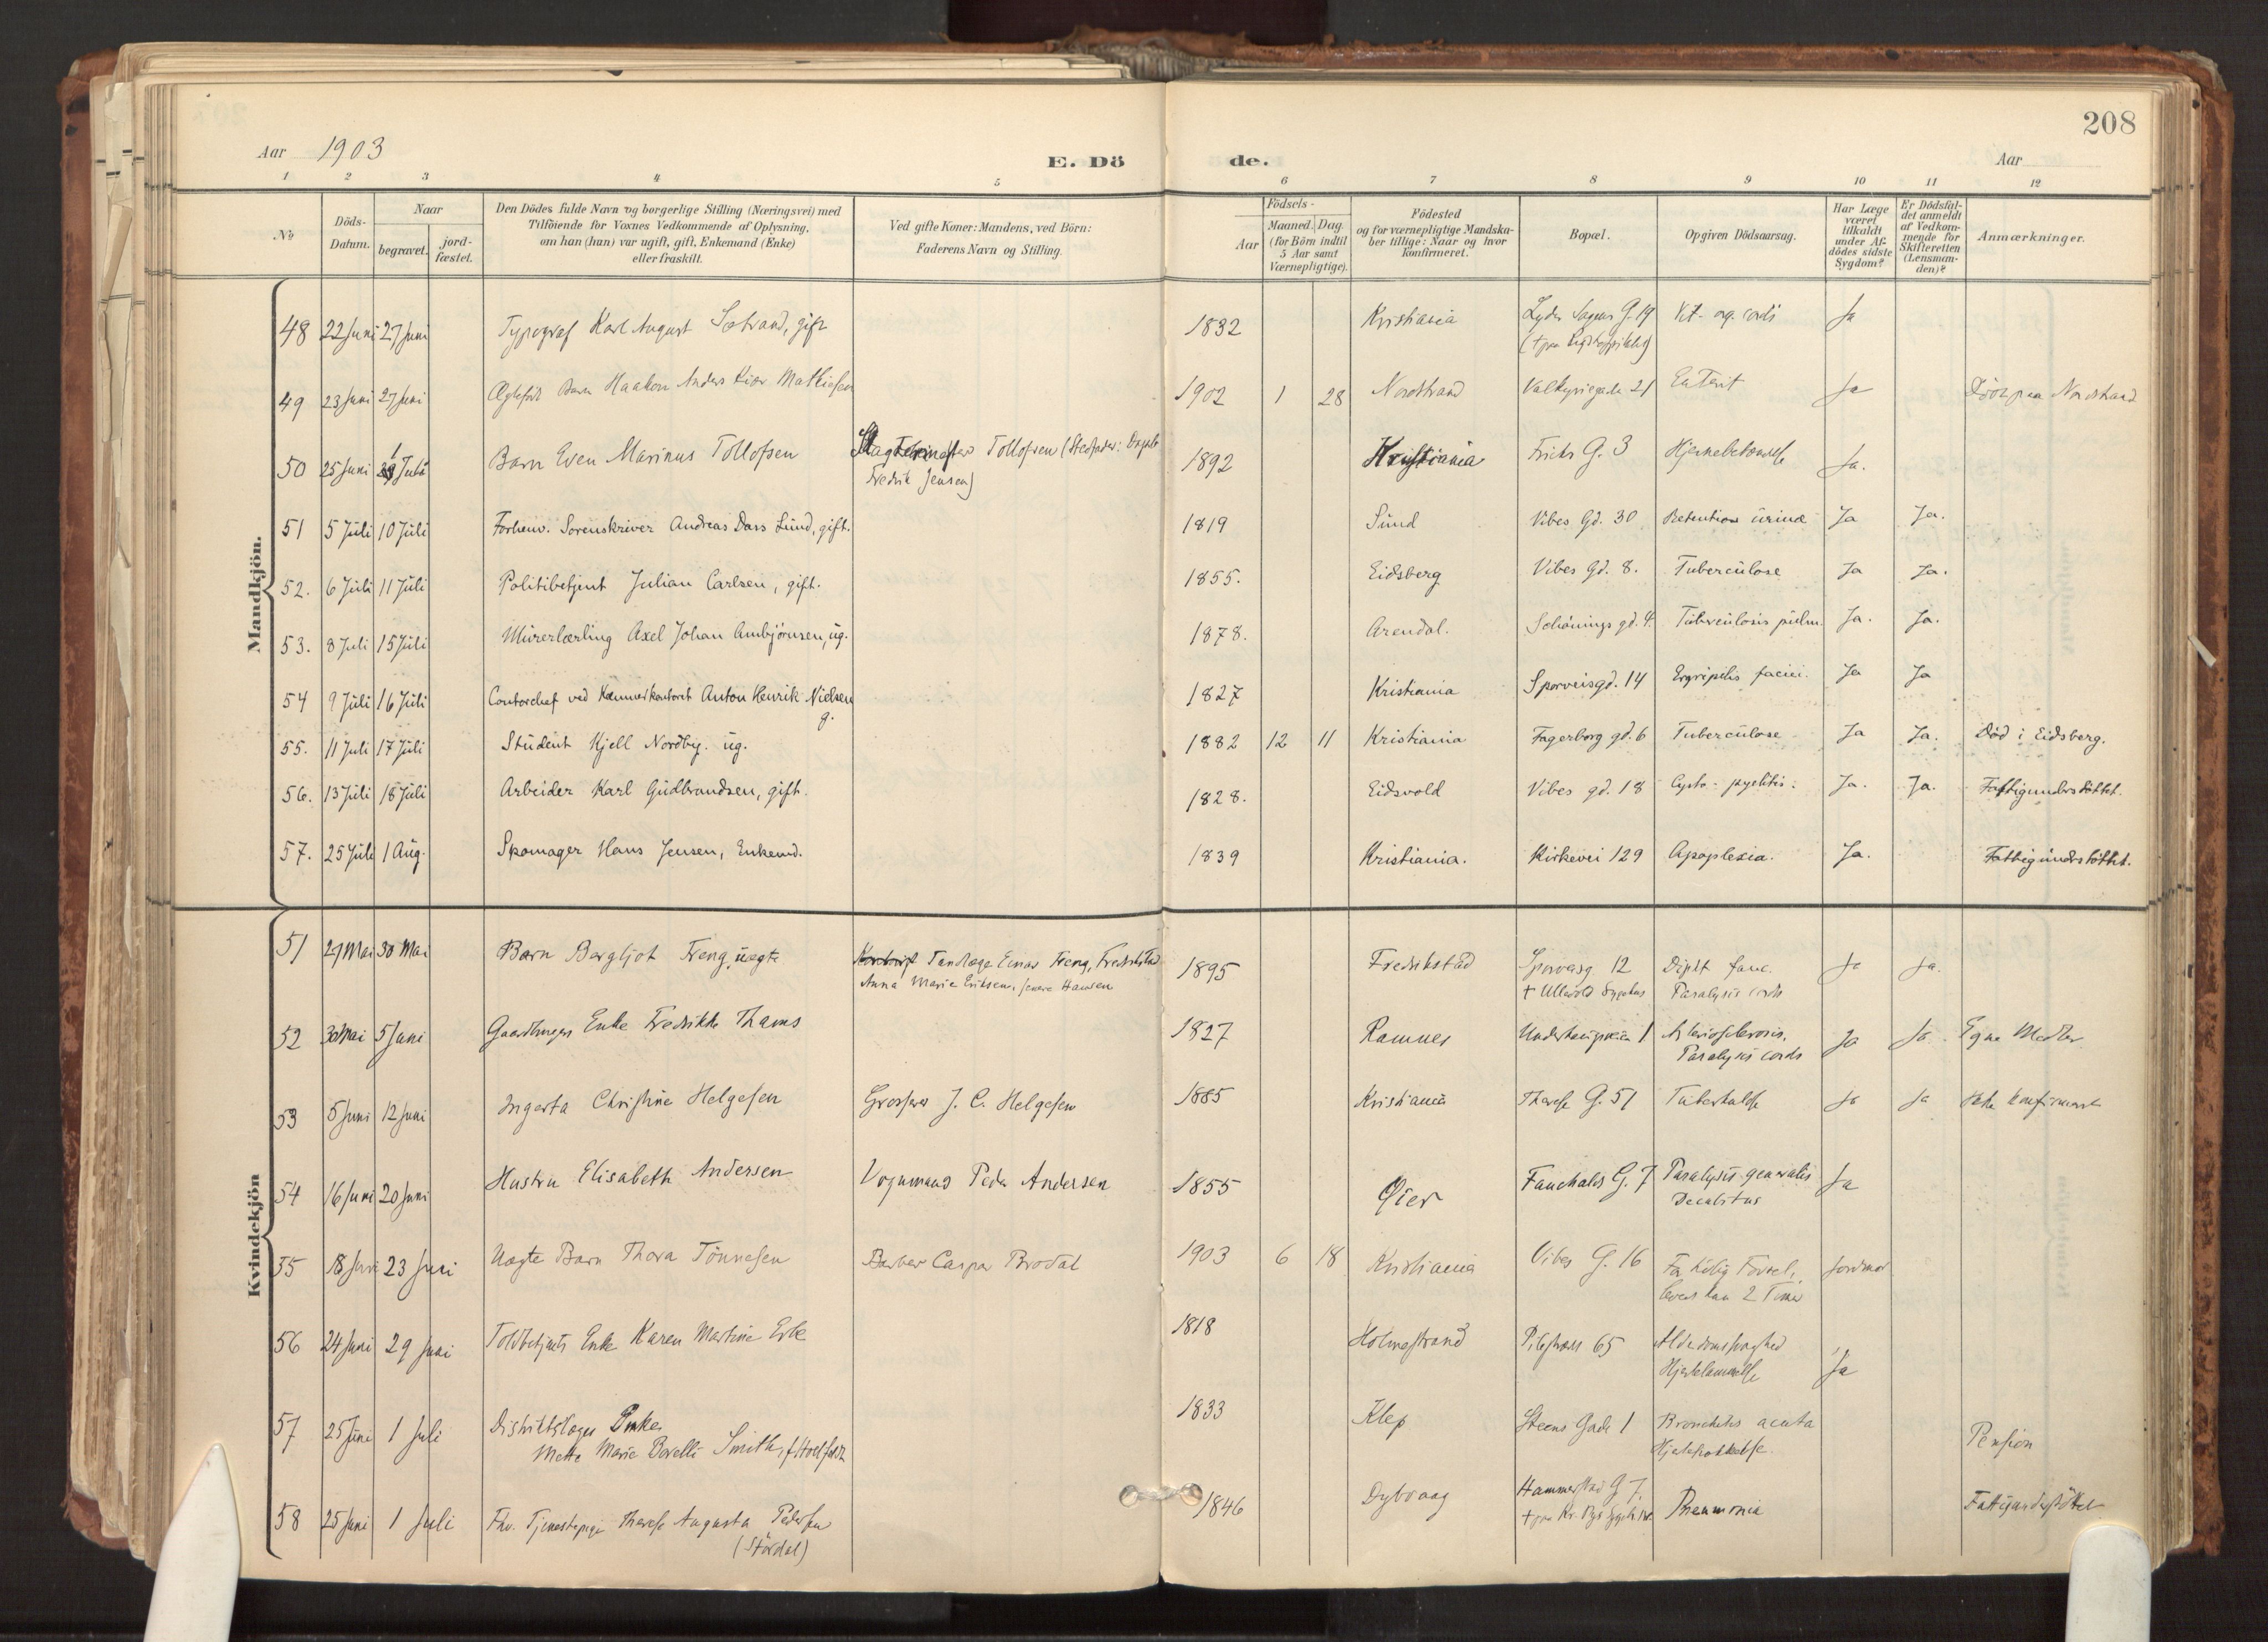 208
Aar 1903
E. Dö de.
Aar
1 2 3 4 5 6 7 8 9 10 11 12
No
Döds-Datum.
Naar
begravet.
jord-fæstet.
Den Dödes fulde Navn og borgerlige Stilling (Næringsvei) med
Tilföiende for Voxnes Vedkommende af Oplysning,
om han (hun) var ugift, gift, Enkemand (Enke)
eller fraskilt.
Ved gifte Koner: Mandens, ved Börn:
Faderens Navn og Stilling.
Födsels-
Aar
Maaned. Dag.
(for Börn indtil
5 Aar samt
Værnepligtige).
Födested
og for værnepligtige Mandska-
ber tillige: Naar og hvor
konfirmeret.
Bopæl.
Opgiven Dödsaarsag.
Har Læge
været
tilkaldt
under Af-
dödes sidste
Sygdom?
Er Dödsfal-
det anmeldt
af Vedkom-
mende for
Skifteretten
(Lensman-
den)?
Anmærkninger.
Mandkjön.
48 22 Juni 27 Juni Typograf Karl August Sætrand, gift 1832 Kristiania Lyder Sagens G. 19 Vit. org. cordis Ja
49 23 Juni 27 Juni Ægtefödt Barn Haakon Anders Kiær Mathiesen 1902 1 28 Nordstrand Valkyriegade 21 Enterit Ja Död paa Nordstrand
50 25 Juni 1 Juli Barn Even Marinus Tollofsen Tollofsen (Stedfader:
Fredrik Jensen) 1892 Kristiania Fricks G. 3 Hjernebetændelse Ja.
51 5 Juli 10 Juli Forhenv. Sorenskriver Andreas Dass Lund, gift. 1819 Sund Vibes Gd. 30 Retention urinæ Ja Ja.
52. 6 Juli 11 Juli Politibetjent Julian Carlsen, gift. 1855. Eidsberg Vibes Gd. 8. Tuberculose Ja Ja.
53. 8 Juli 15 Juli Murerlærling Axel Johan Ambjörnsen, ug. 1878. Arendal. Schönings gd. 4. Tuberculosis pulm. Ja. Ja.
54 9 Juli 16 Juli Contorchef ved Kæmnerkontoret Anton Henrik Nielsen
g. 1827 Kristiania Sporveisgd. 14 Erysipelis faciei. Ja Ja
55. 11 Juli 17 Juli Student Kjell Nordby. ug. 1882 12 11 Kristiania Fagerborg gd. 6 Tuberculose Ja Ja. Död i Eidsberg.
56. 13 Juli 18 Juli Arbeider Karl Gudbrandsen, gift. 1828. Eidsvold Vibes gd. 18 Cysto-pyelitis. Ja. Ja. Fattigunderstöttet.
57. 25 Juli 1 Aug. Skomager Hans Jensen, Enkemd. 1839 Kristiania. Kirkevei 129 Apoplexia. Ja. Fattigunderstöttet.
Kvindekjön
51 27 Mai 30 Mai Barn Bergljot Treng, uægte Tandlæge Einar Treng, Fredrikstad
Anna Marie Eriksen, senere Hansen 1895 Fredrikstad Sporveisg. 12
+ Ullevold Sygehus Dipht fauc.
Paralysis cordis Ja Ja.
52 30 Mai 5 Juni Gaardbrugers Enke Fredrikke Thams 1827 Ramnes Underhaugsveien 1 Arteriosclerosis,
Paralysis cordis Ja Ja. Egne Midler
53 5 Juni 12 Juni Ingerta Christine Helgesen Grosserer J. C. Helgesen 1885 Kristiania Therese G. 51 Tuberkulose Ja Ja Ikke konfirmert
54 16 Juni 20 Juni Hustru Elisabeth Andersen Vognmand Peder Andersen 1855 Öier Fauchalds G. 7 Paralysis generalis
Decubitus Ja
55 18 Juni 23 Juni Uægte Barn Thora Tönnesen Barber Caspar Brodal 1903 6 18 Kristiania Vibes G. 16 For tidlig Födsel,
levet kun 2 Timer Jordmor
56 24 Juni 29 Juni Toldbetjents Enke Karen Martine Erbe 1818 Holmestrand Pilestræde 65 Alderdomssvaghed
Hjertelammelse Ja
57 25 Juni 1 Juli Distriktslæges Enke
Mette Marie Borelli Smith, 1833 Klep Steens Gade 1 Bronchitis acuta
Pension
58 25 Juni 1 Juli Fhv. Tjenestepige Therese Augusta Pedersen
(Stördal) 1846 Dybvaag Hammerstad G 7,
Pneumonia Fattigunderstöttet